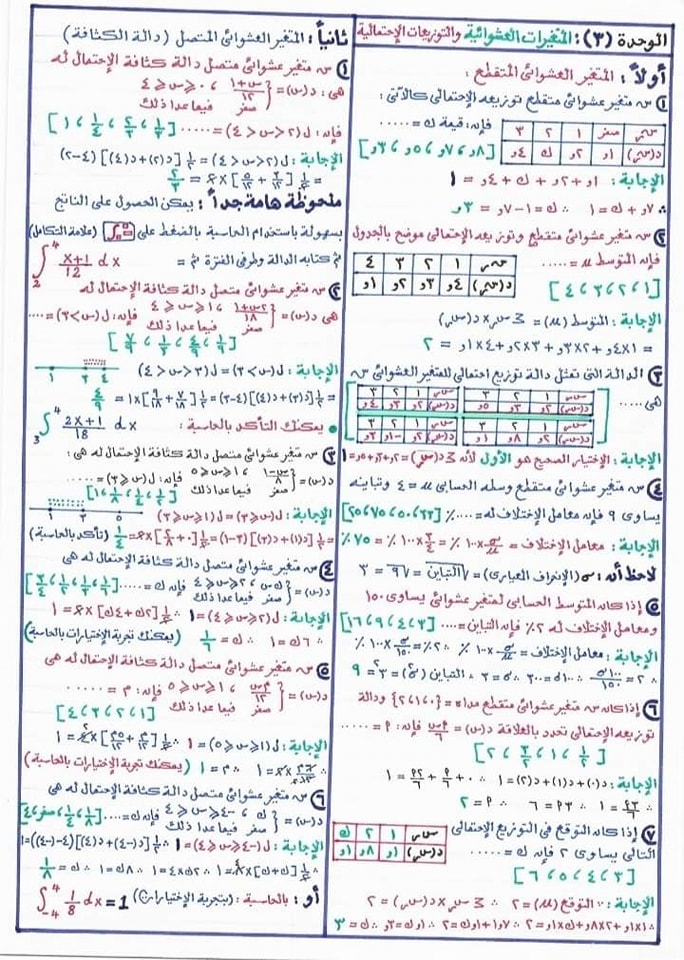 الوحدة (٣): المتغيرات العشوائية والتوزيعات الإحتمالية
أولاً: المتغير العشوائى المتقطع:
١ س متغير عشوائى متقطع توزيعه الإحتمالى كالآتى:
سر صفر ١ ٢ ٣
د(سر) ١و ٢و ك ٤و
فإن: قيمة ك = .....
[٨و ، ٧و ، ٥و ، ٣و]
الإجابة: ١و + ٢و + ك + ٤و = ١
∴ ٧و + ك = ١ ∴ ك = ١ - ٧و = ٣و
٢ س متغير عشوائى متقطع وتوزيعه الإحتمالى موضح بالجدول
فإن المتوسط μ = .....
سر ١ ٢ ٣ ٤
د(سر) ٤و ٣و ٢و ١و
[١ ، ٢ ، ٣ ، ٤]
الإجابة: المتوسط (μ) = ∑ سر × د(سر)
= ١×٤و + ٢×٣و + ٣×٢و + ٤×١و = ٢
٣ الدالة التى تمثل دالة توزيع احتمالى للمتغير العشوائى س
هى .....
الإجابة: الإختيار الصحيح هو الأول لأنه ∑ د(سر) = ٢و + ٣و + ٥و = ١
٤ س متغير عشوائى متقطع وسطه الحسابى μ = ٤ وتباينه
يساوى ٩ فإن معامل الإختلاف له = .....٪
الإجابة: معامل الإختلاف = σ/μ × ١٠٠٪ = ٣/٤ × ١٠٠٪ = ٧٥٪
لاحظ أن: σ (الإنحراف المعيارى) = √التباين = √٩ = ٣
٥ إذا كان المتوسط الحسابى لمتغير عشوائى يساوى ١٥٠
ومعامل الإختلاف له ٢٪ فإن التباين = .....
[٣ ، ٤ ، ٩ ، ١٦]
الإجابة: معامل الإختلاف = σ/μ × ١٠٠٪ ∴ ٢٪ = σ/١٥٠ × ١٠٠٪
∴ ٢ = ١٠٠σ/١٥٠ ∴ ١٠٠σ = ٣٠٠ ∴ σ = ٣ ∴ التباين (σ²) = ٣² = ٩
٦ إذا كان س متغير عشوائى متقطع مداه = {٠ ، ١ ، ٢} ودالة
توزيعه الإحتمالى تحدد بالعلاقة د(س) = م س/٦ فإن: م = .....
[١/٢ ، ١ ، ٣/٢ ، ٢]
الإجابة: د(٠) + د(١) + د(٢) = ١ ∴ ٠ + م/٦ + ٢م/٦ = ١
∴ ٣م/٦ = ١ ∴ ٣م = ٦ ∴ م = ٢
٧ إذا كان التوقع فى التوزيع الإحتمالى
التالى يساوى ٢ فإن ك = .....
سر ١ ٢ ك
د(سر) ١و ٨و ١و
[٣ ، ٤ ، ٥ ، ٦]
الإجابة: ∵ التوقع (μ) = ٢ ∴ ∑ سر × د(سر) = ٢
∴ ١×١و + ٢×٨و + ك×١و = ٢ ∴ ١٫٧ + ١و ك = ٢ ∴ ١و ك = ٣و ∴ ك = ٣
ثانياً: المتغير العشوائى المتصل (دالة الكثافة)
١ س متغير عشوائى متصل دالة كثافة الإحتمال له
فإن: ل(٢ < س < ٤) = .....
[١/٢ ، ٢/٣ ، ١/٤ ، ١]
الإجابة: ل(٢ < س < ٤) = ١/٢ [د(٢) + د(٤)] (٤-٢)
= ١/٢ [٣/١٢ + ٥/١٢] × ٢ = ٢/٣
ملحوظة هامة جداً: يمكن الحصول على الناتج
بسهولة باستخدام الحاسبة بالضغط على (علامة التكامل)
ثم كتابة الدالة وطرفى الفترة ثم =
∫₂⁴ x+1/12 dx
٢ س متغير عشوائى متصل دالة كثافة الإحتمال له
هى د(س) = { ٢س+١/١٨ ، ١ ≤ س ≤ ٤ فإن: ل(س > ٣) = .....
صفر فيما عدا ذلك
الإجابة: ل(س > ٣) = ل(٣ < س < ٤)
= ١/٢ [د(٣) + د(٤)] (٤-٣) = ١/٢ [٧/١٨ + ٩/١٨] × ١ = ٤/٩
• يمكنك التأكد بالحاسبة:
∫₃⁴ 2x+1/18 dx
٣ س متغير عشوائى متصل دالة كثافة الإحتمال له هى:
د(س) = { س-١/٨ ، ١ ≤ س ≤ ٥ فإن: ل(س ≤ ٣) = .....
صفر فيما عدا ذلك
الإجابة: ل(س ≤ ٣) = ل(١ ≤ س ≤ ٣)
= ١/٢ [د(١) + د(٣)] (٣-١) = ١/٢ [٠ + ٢/٨] × ٢ = ١/٤ (تأكد بالحاسبة)
٤ س متغير عشوائى متصل دالة كثافة الإحتمال له هى
د(س) = { ك س ، ٢ ≤ س ≤ ٤ فإن ك = .....
صفر فيما عدا ذلك
الإجابة: ل(٢ ≤ س ≤ ٤) = ١ ∴ ١/٢ [٢ك + ٤ك] × ٢ = ١
∴ ٦ك = ١ ∴ ك = ١/٦ (يمكنك تجربة الإختيارات بالحاسبة)
٥ س متغير عشوائى متصل دالة كثافة الإحتمال له هى
د(س) = { م س/١٢ ، ١ ≤ س ≤ ٥ فإن: م = .....
صفر فيما عدا ذلك
[١ ، ٢ ، ٣ ، ٤]
الإجابة: ل(١ ≤ س ≤ ٥) = ١ ∴ ١/٢ [م/١٢ + ٥م/١٢] × ٤ = ١
∴ م = ١ (يمكنك تجربة الإختيارات بالحاسبة)
٦ س متغير عشوائى متصل دالة كثافة الإحتمال له هى
د(س) = { ك ، -٤ ≤ س ≤ ٤ فإن ك = .....
صفر فيما عدا ذلك
الإجابة: ل(-٤ ≤ س ≤ ٤) = ١ ∴ ١/٢ [د(-٤) + د(٤)] (٤-(-٤)) = ١
∴ ١/٢ [ك + ك] × ٨ = ١ ∴ ٢ك × ٤ = ١ ∴ ٨ك = ١ ∴ ك = ١/٨
أو: بالحاسبة: (بتجربة الإختيارات)
∫₋₄⁴ 1/8 dx = 1